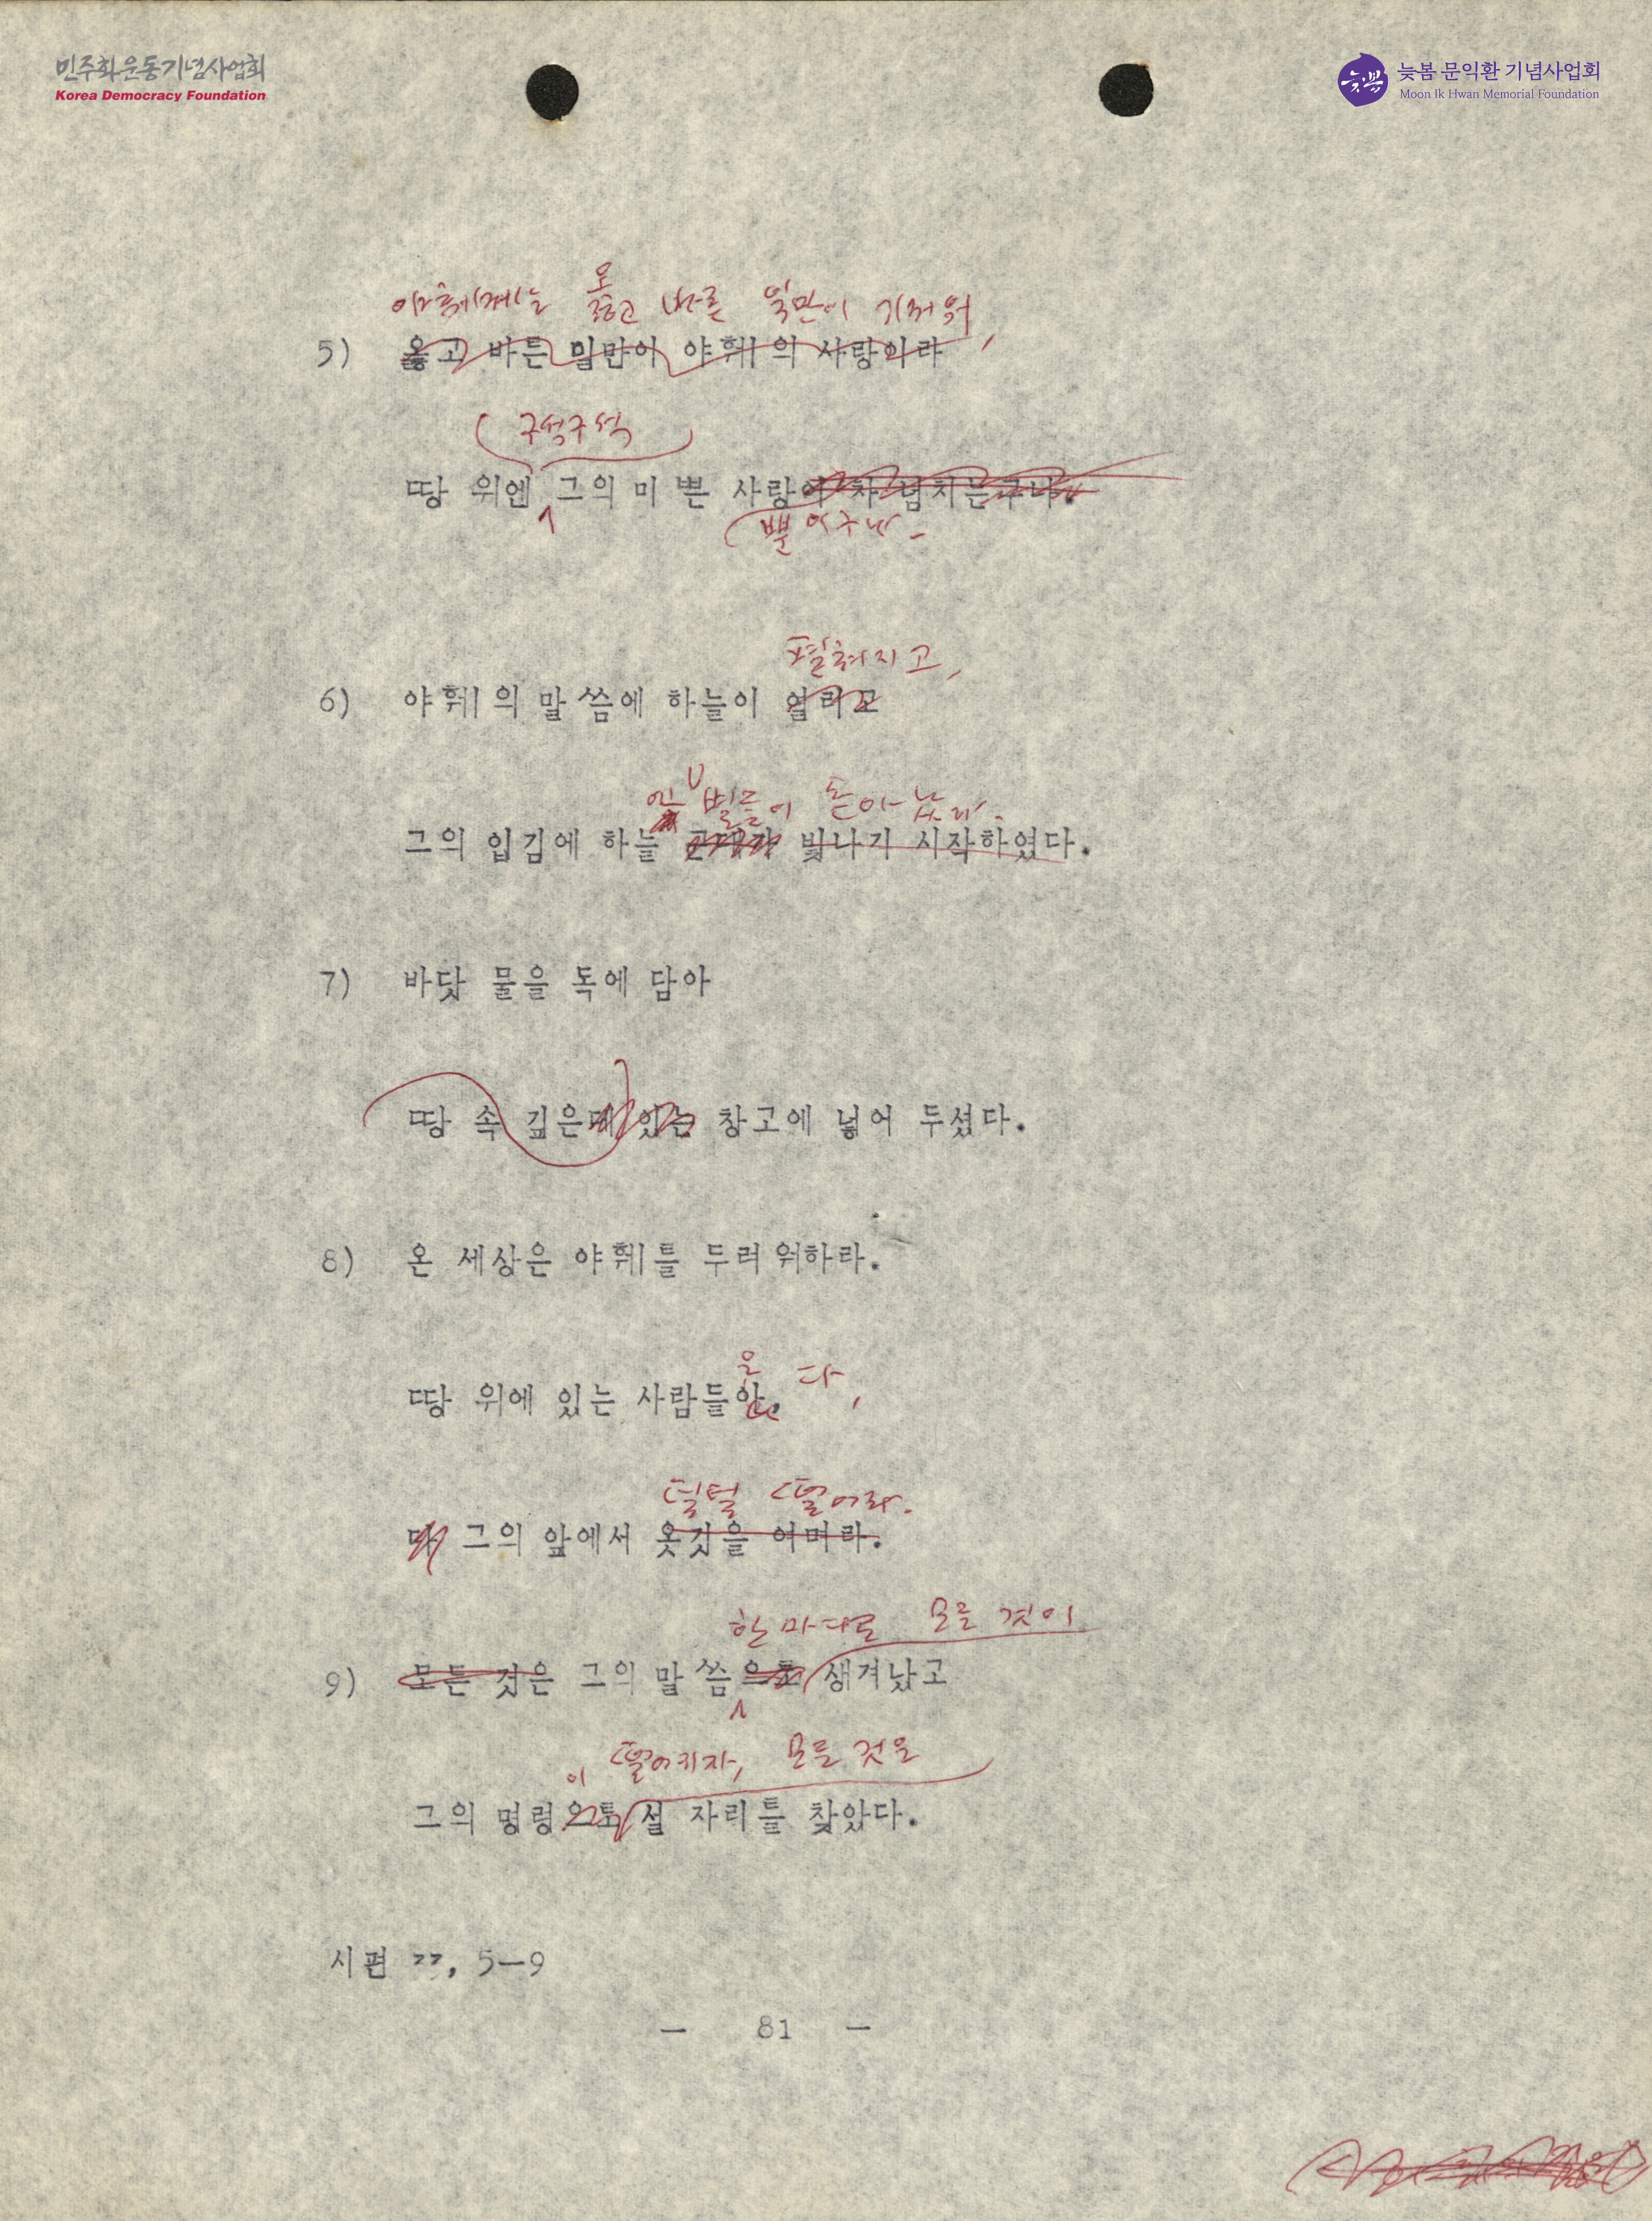 민주화운동기념사업회
Korea Democracy Foundation
늦봄 문익환 기념사업회
Moon Ik Hwan Memorial Foundation
야훼께는 옳고 바른 일만이 기꺼워,
5) 옳고 바른 일만이 야훼의 사랑이라
구석구석
땅 위엔 그의 미쁜 사랑이 차 넘치는구나.
뿐이구나.
펼쳐지고,
6) 야훼의 말씀에 하늘이 열리고
엔 별들이 돋아났다.
그의 입김에 하늘 빛나기 시작하였다.
7) 바닷 물을 독에 담아
땅 속 깊은데 있는 창고에 넣어 두셨다.
8) 온 세상은 야훼를 두려워하라.
은 다,
땅 위에 있는 사람들아.
덜덜 떨어라.
다 그의 앞에서 옷깃을 여며라.
한 마디로 모든 것이
9) 모든 것은 그의 말씀으로 생겨났고
이 떨어지자, 모든 것은
그의 명령으로 설 자리를 찾았다.
시편 33, 5—9
— 81 —